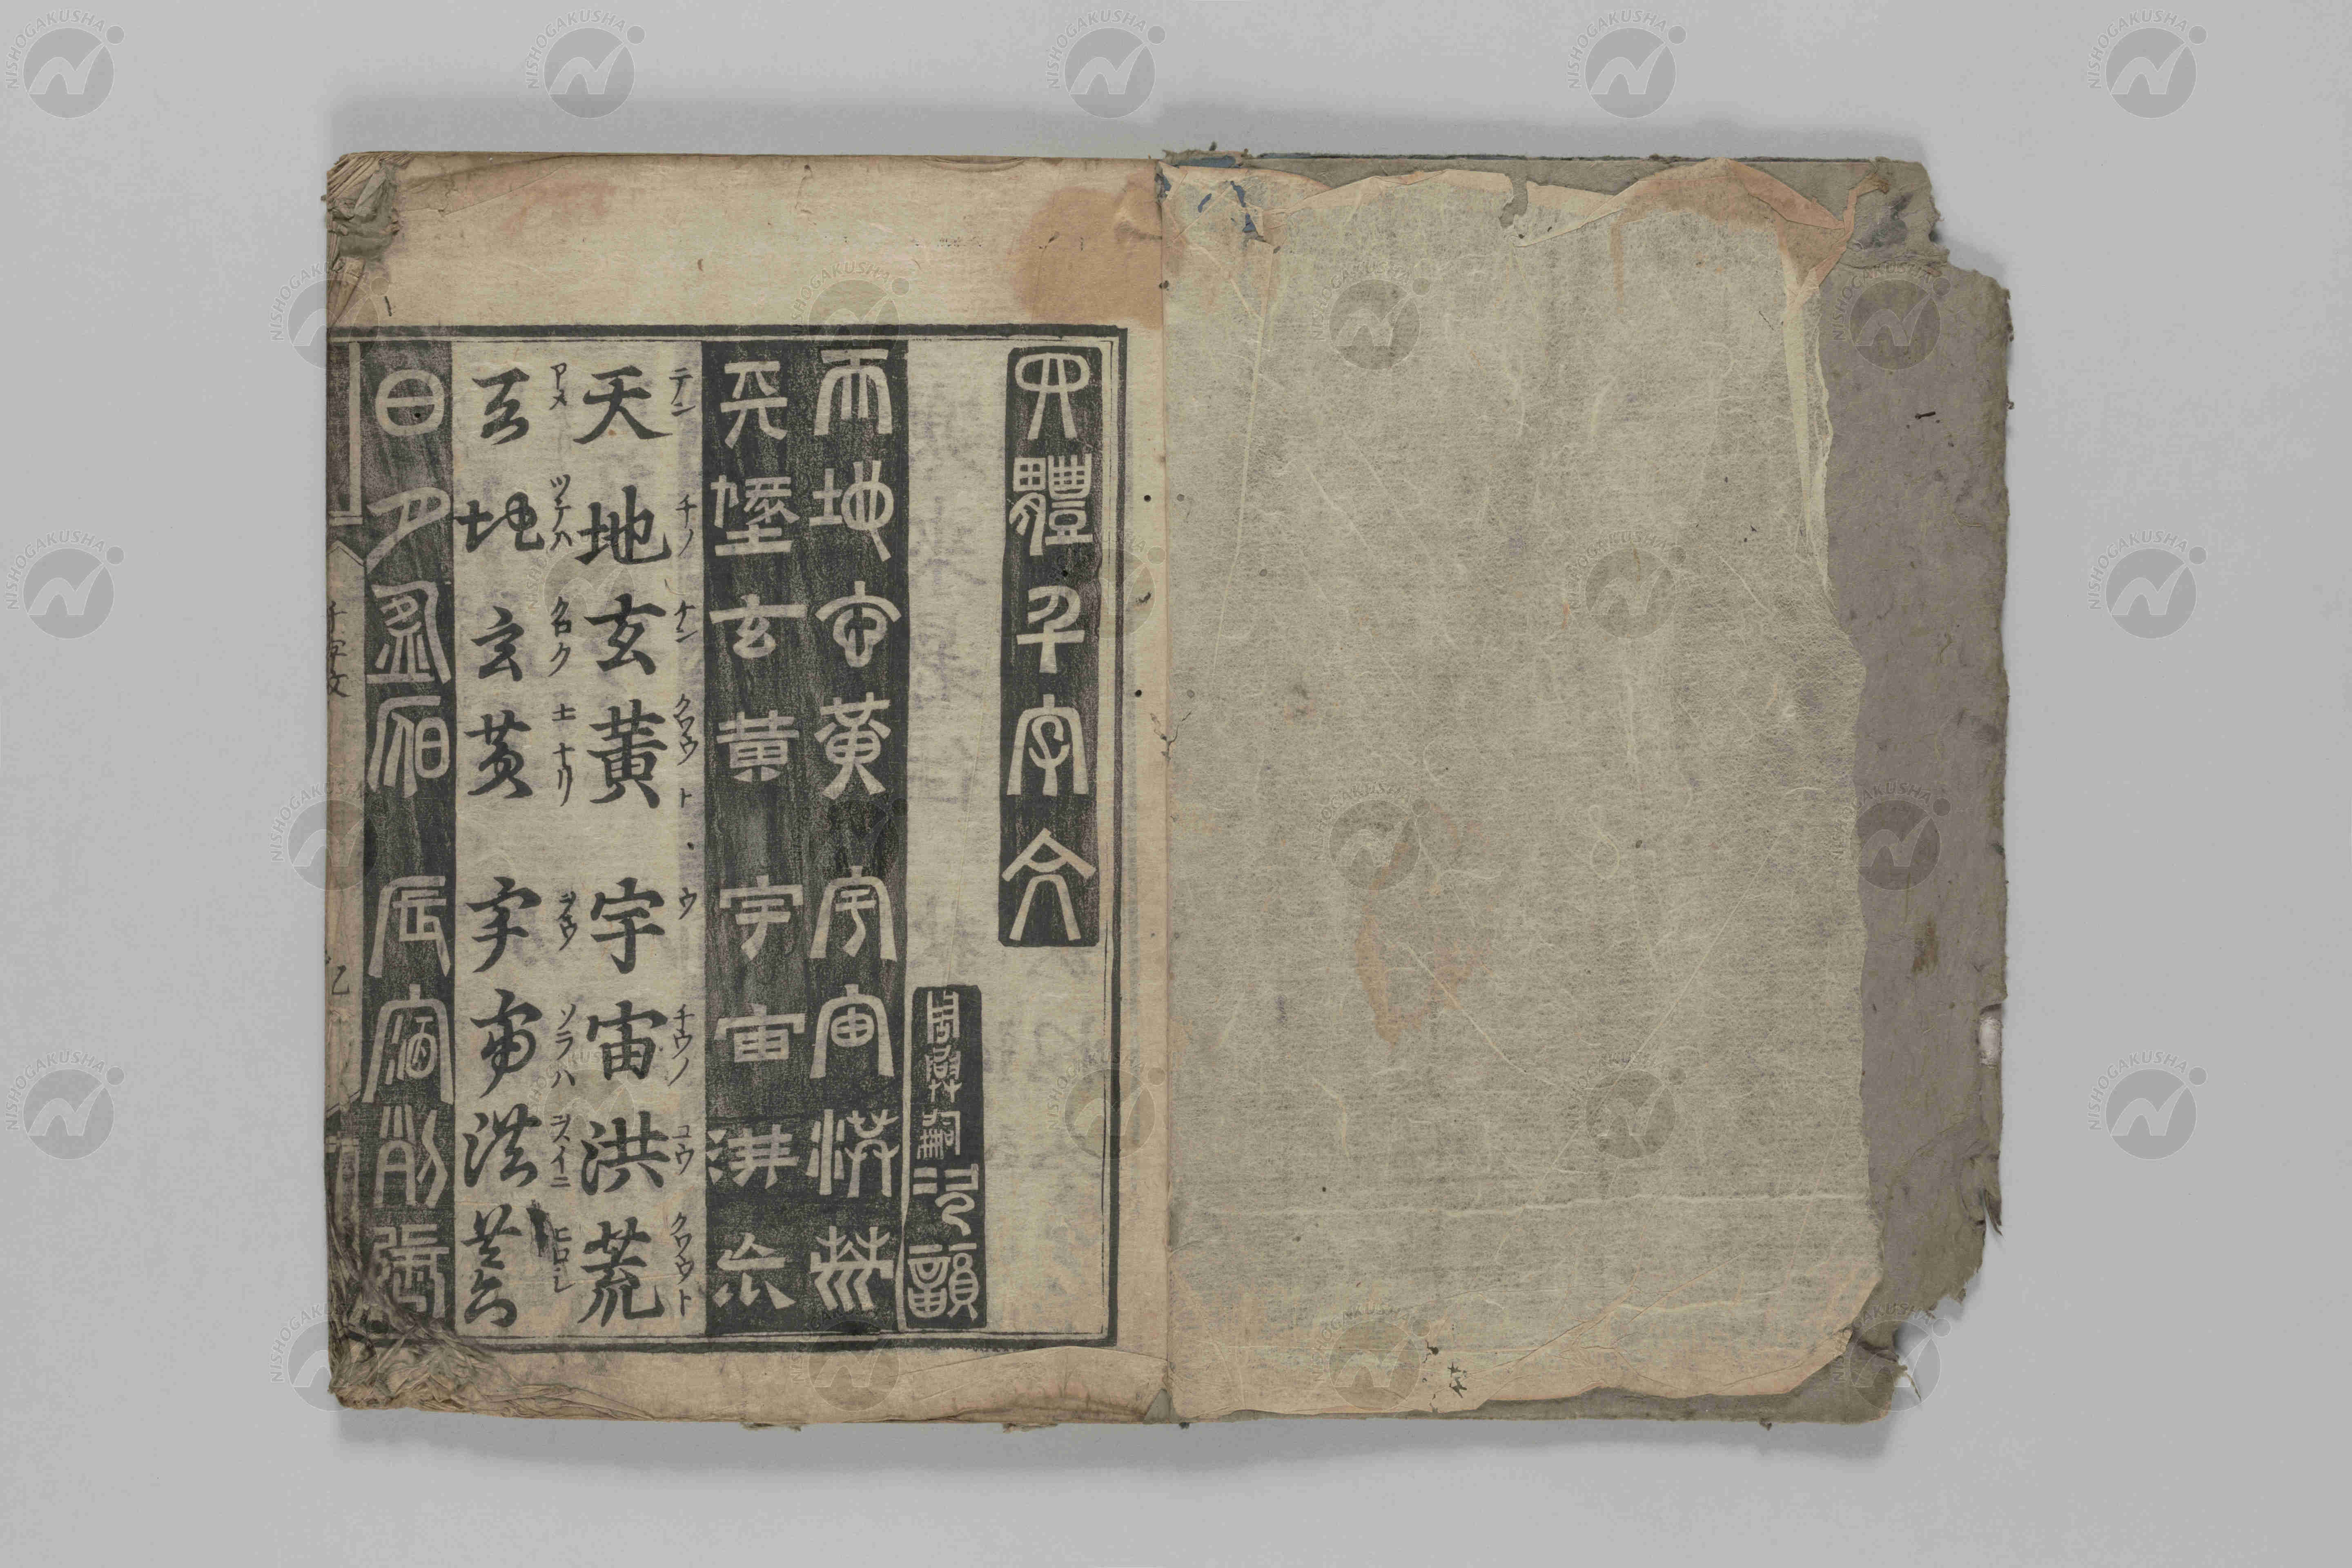 四體千字文
周興嗣次韻
天地玄黃宇宙洪荒
天地玄黃宇宙洪荒
テン チノ ナン クワウト ウ チウノ コウ クワウト
天地玄黃宇宙洪荒
アメ ツチハ クロク
天地玄黃宇宙洪荒
日月盈昃辰宿列張
千字文
NISHOGAKUSHA